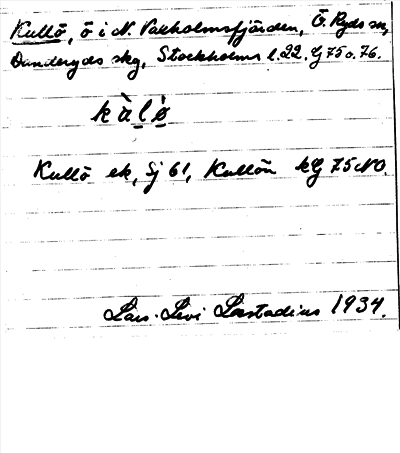 Kullö, ö i N. Vaxholmsfjärden, Ö. Ryds sn,
Danderyds skg, Stockholms l. 22. Gj 75 o. 76.
kàlö
Kullö ek, Sj 61, Kullön kG 75 NO.
Lars-Levi Læstadius 1934.